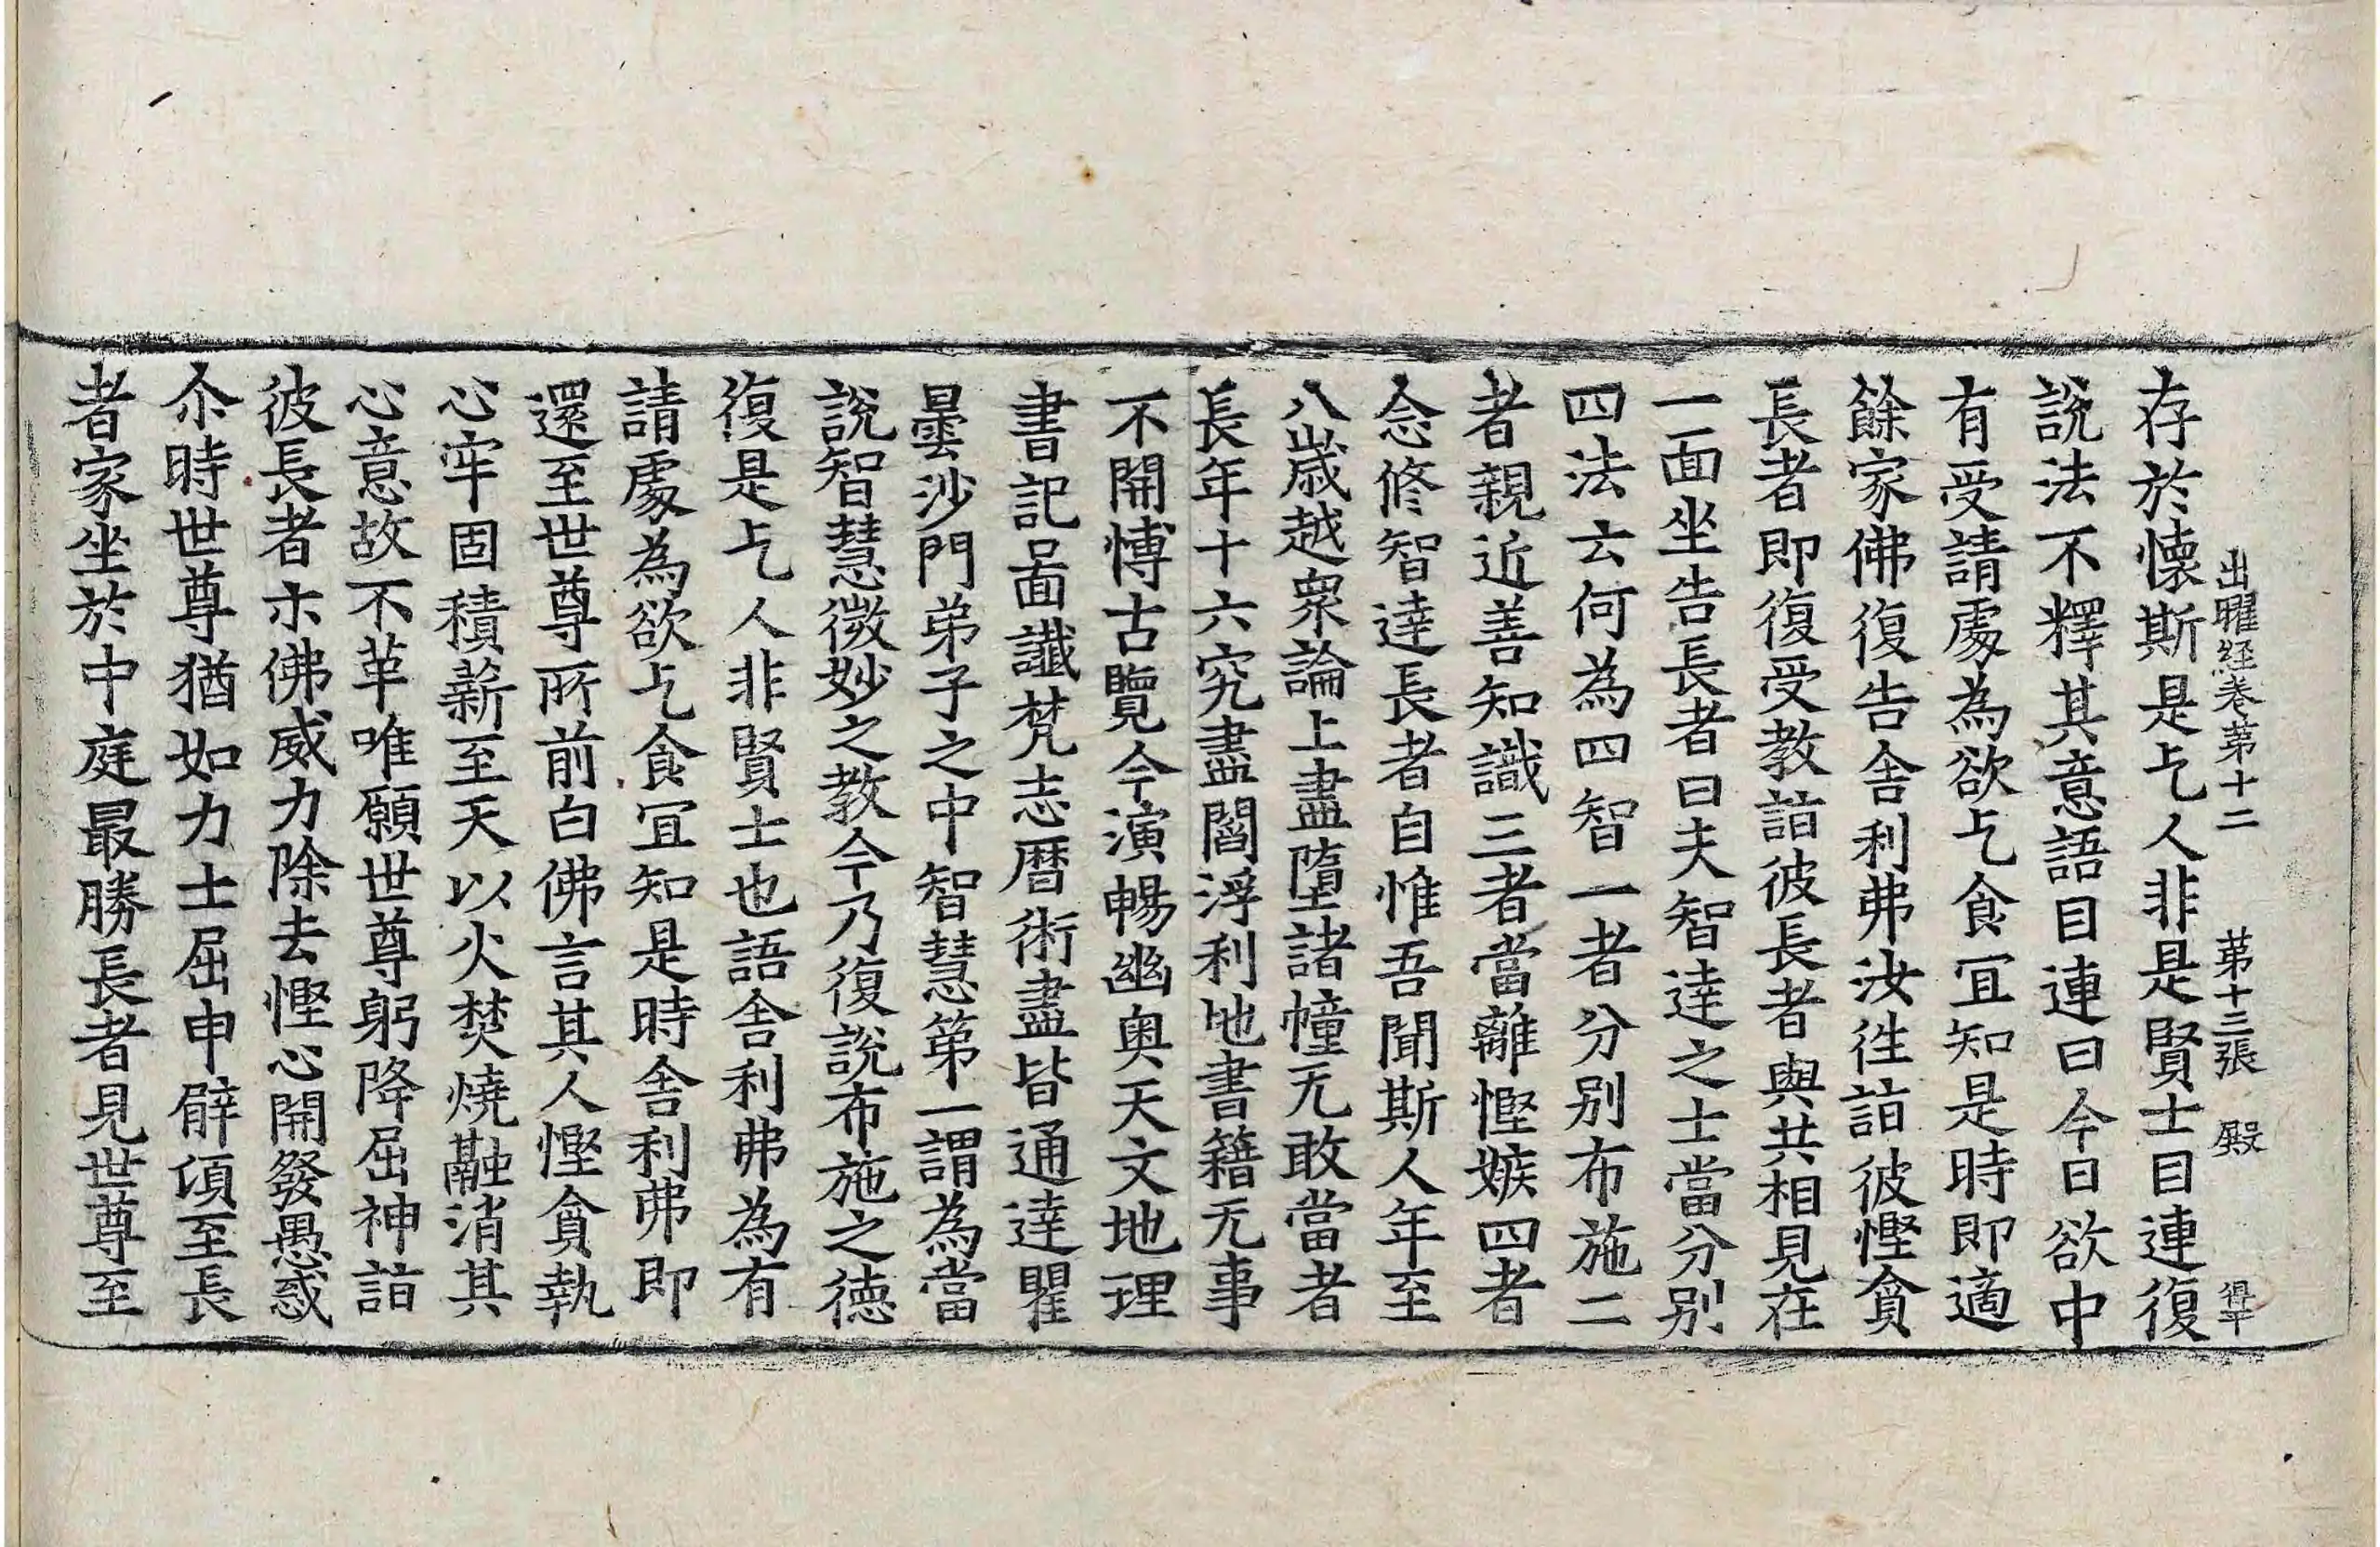 出曜経卷第十二 第十三張 殿 得平
存於懐斯是乞人非是賢士目連復
説法不釋其意語目連曰今日欲中
有受請處為欲乞食冝知是時即適
餘家佛復告舎利弗汝往詣彼慳貪
長者即復受教詣彼長者與共相見在
一面坐告長者曰夫智達之士當分別
四法云何為四智一者分别布施二
者親近善知識三者當離慳嫉四者
念修智達長者自惟吾聞斯人年至
八歳越衆論上盡墮諸幢无敢當者
長年十六究盡閻浮利地書籍无事
不開博古覽今演暢幽奥天文地理
書記啚讖梵志曆術盡皆通達瞿
曇沙門弟子之中智慧第一謂為當
説智慧微妙之教今乃復説布施之徳
復是乞人非賢士也語舎利弗為有
請處為欲乞食冝知是時舎利弗即
還至世尊所前白佛言其人慳貪執
心牢固積薪至天以火焚燒融消其
心意故不革唯願世尊躬降屈神詣
彼長者示佛威力除去慳心開發愚惑
尒時世尊猶如力士屈申臂頃至長
者家坐於中庭最勝長者見世尊至